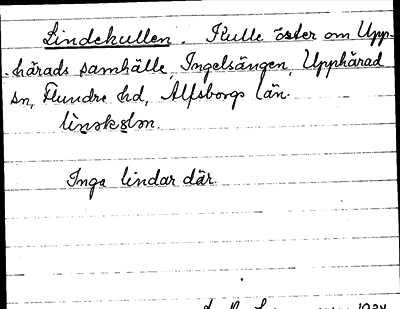 Lindekullen. Kulle öster om Upp-
härads samhälle, Ingelsängen, Upphärad
sn, Flundre hd, Älfsborgs län.

Inga lindar där